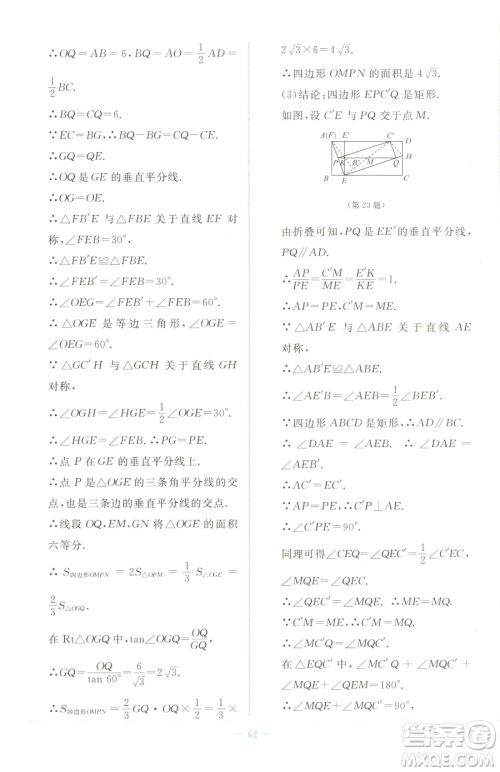 ∴OQ=AB=6，BQ=AO=1/2 AD=
1/2 BC.
∴BQ=CQ=6.
∵EC=BG，∴BG-BQ=EC-CQ.
∴GQ=QE.
∴OQ是GE的垂直平分线.
∴OG=OE.
∵△FB′E与△BEF关于直线EF对
称，∠FEB=30°，
∴△FB′E≌△FBE.
∴∠FEB′=∠FEB=30°.
∴∠OEG=∠FEB′+∠FEB=60°.
∴△OGE是等边三角形，∠OGE=
∠OEG=60°.
∵△GC′H与△GCH关于直线GH
对称，
∴∠OGH=∠HGE=1/2∠OGE=30°.
∴∠HGE=∠FEB. ∴PG=PE.
∴点P在GE的垂直平分线上.
∴点P是△OGE的三条角平分线的交
点，也是三条边的垂直平分线的交点.
∴线段OQ,EM,GN将△OGE的面积
六等分.
∴S四边形OMPN=2S△OPM=1/3 S△OGE=
2/3 S△OGQ.
在Rt△OGQ中，tan∠OGQ=OQ/GQ，
∴GQ=OQ/tan 60°=6/√3=2√3.
∴S四边形OMPN=2/3 GQ·OQ×1/2=1/3×
2√3×6=4√3.
∴四边形OMPN的面积是4√3.
(3)结论：四边形EPC′Q是矩形.
如图，设C′E与PQ交于点M.
A(F) E′ C′ D
P K B′ M H
B E C
(第23题)
由折叠可知，PQ是EE′的垂直平分线，
PQ∥AD.
∴AP/PE=C′M/ME=E′K/KE=1.
∴AP=PE，C′M=ME.
∵△AB′E与△ABE关于直线AE
对称，
∴△AB′E≌△ABE.
∴∠AEB′=∠AEB=1/2∠BEB′.
∵四边形ABCD是矩形，
∴AD∥BC. ∴∠DAE=∠AEB.
∴∠DAE=∠AEB′.
∴AC′=EC′.
∵AP=PE，∴C′P⊥AE.
∴∠C′PE=90°.
同理可得∠CEQ=∠QEC′=1/2∠CEC′，
∠MQE=∠CEQ.
∴∠QEC′=∠MQE. ∴MQ=ME.
∵C′M=ME，∴C′M=MQ.
∴∠MC′Q=∠MQC′.
在△EQC′中，∠QEC′+∠MC′Q+
∠MQC′+∠MQE=180°.
∴∠MQC′+∠MQE=90°.
— 62 —